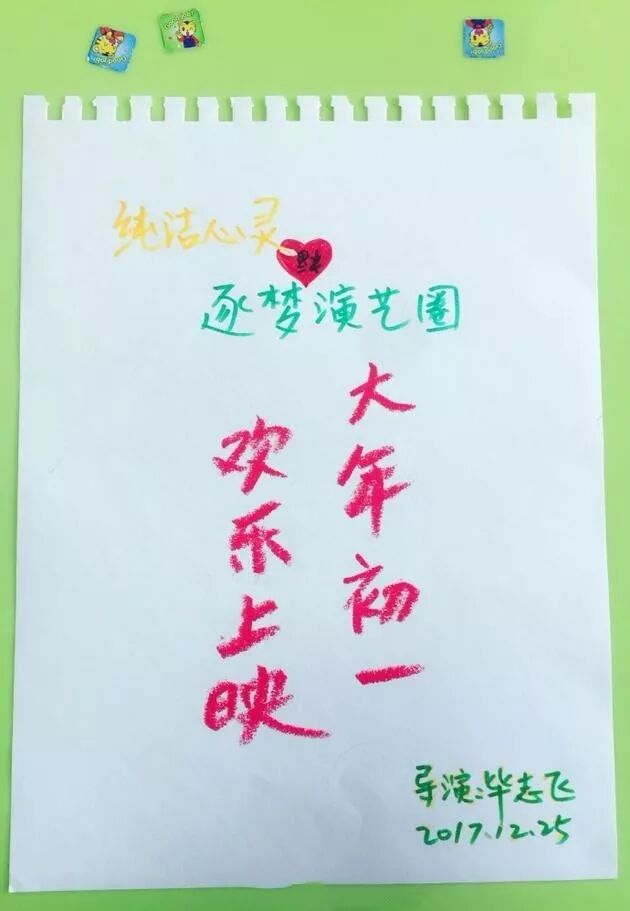 纯洁心灵
逐梦演艺圈
大年初一
欢乐上映
导演:毕志飞
2017.12.25